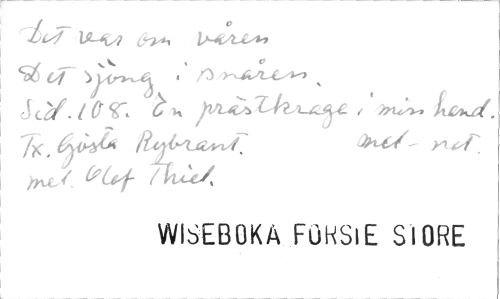 Det var om våren
Det sjöng i snåren.
Sid. 108. En prästkrage i min hand.
Tx. Gösta Rybrant. met - not.
mel. Olof Thiel.
WISEBOKA FORSTE STORE